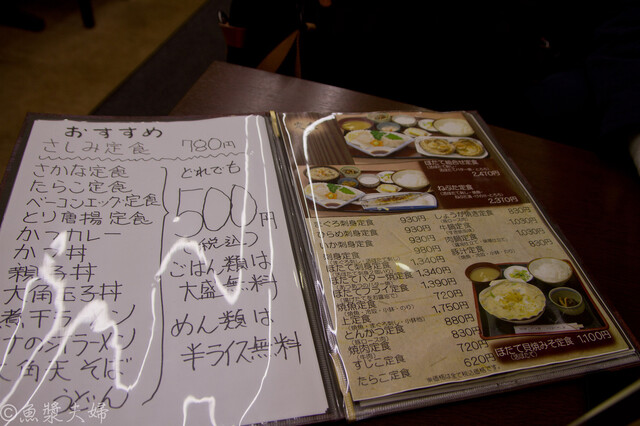 おすすめ
さしみ定食 780円
さかな定食
たらこ定食
ベーコンエッグ定食
とり唐揚定食
かつカレー
かつ丼
親子丼
大角玉子丼
煮干ラーメン
うどん
どれでも
500円
(税込)
ごはん類は
大盛無料
めん類は
半ライス無料
ほたて総合定食
2,410円
ねぶた定食
2,310円
まぐろ刺身定食 930円
ひらめ刺身定食 930円
いか刺身定食 930円
刺身定食
ほたて刺身定食 1,340円
ほたてバター焼定食 1,340円
ほたてフライ定食 1,390円
焼魚定食 720円
上定食 1,750円
とんかつ定食 880円
焼肉定食 830円
すじこ定食 720円
たらこ定食 620円
しょうが焼き定食 830円
牛鍋定食 1,030円
肉鍋定食
豚汁定食
ほたて貝焼みそ定食 1,100円
©魚漿夫婦